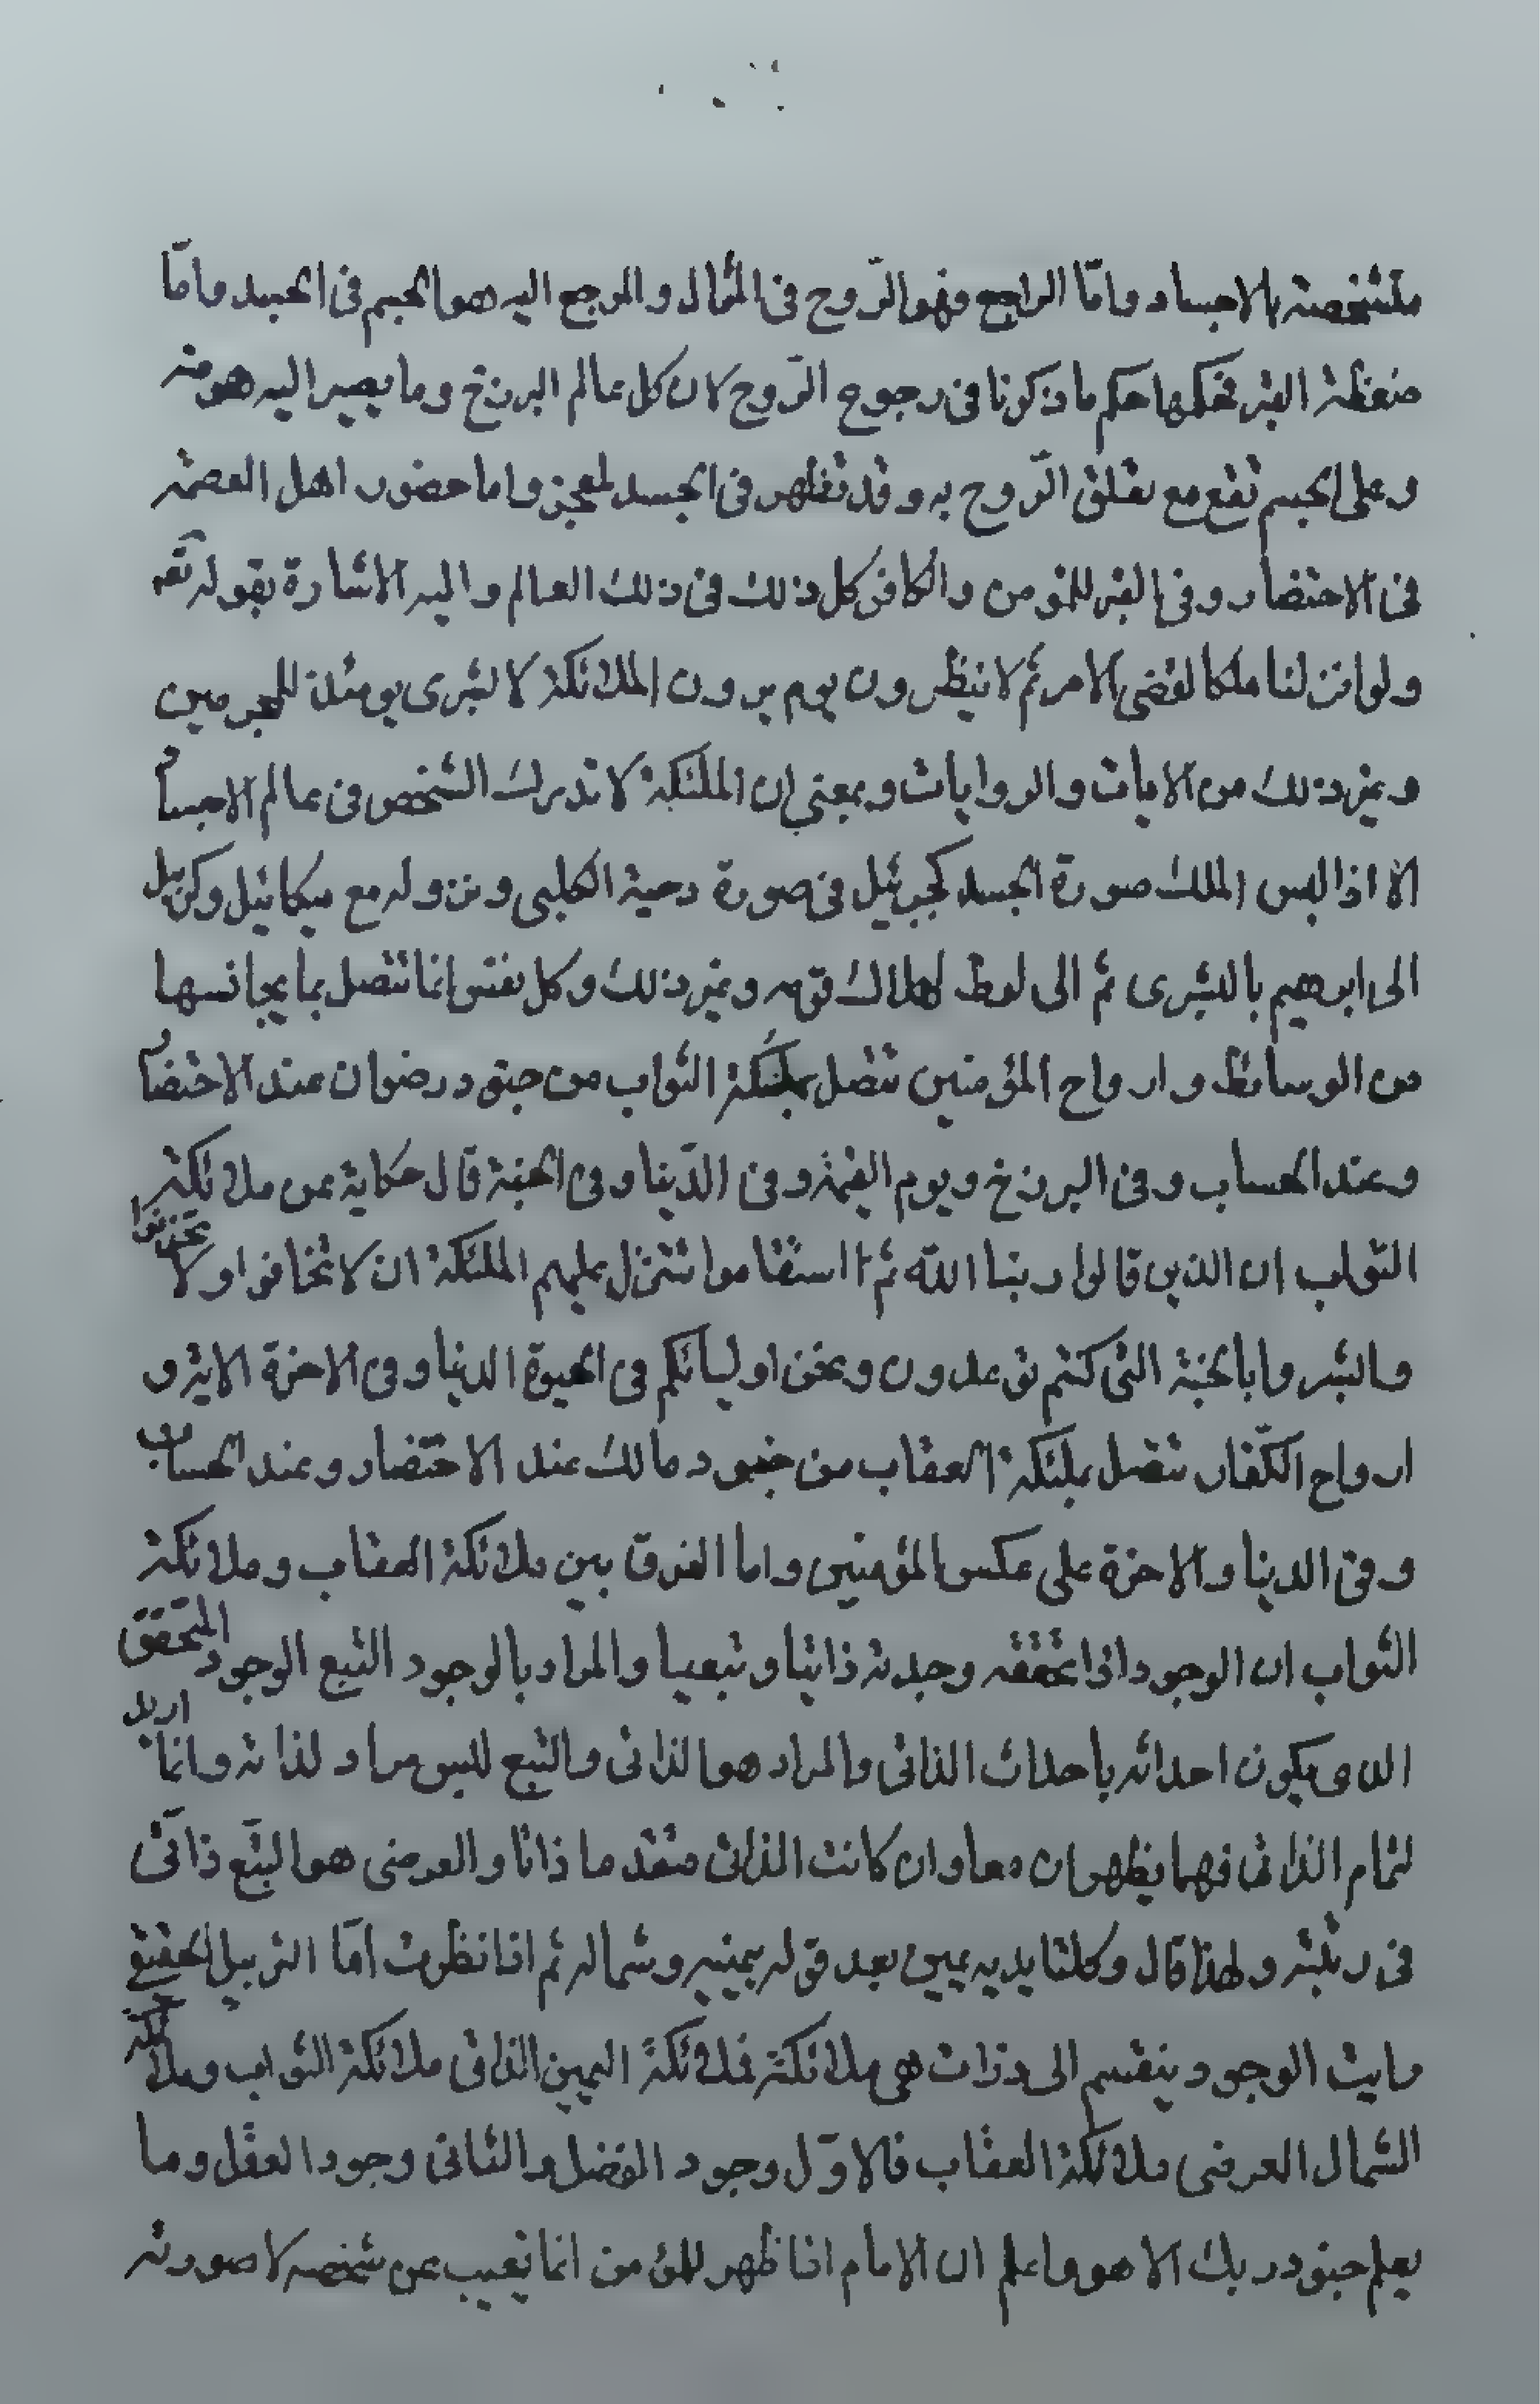 متشخصة بالاجساد وامّا الراجع فهو الرّوح فى المثال والمرجع اليه هو الجسم فى الجسد وامّا
ضغطة القبر فحكمها حكم ما ذكرنا فى رجوع الرّوح لان كل عالم البرزخ وما يصير اليه هو منه
وعلى الجسم تقع مع تعلق الرّوح به وقد تظهر فى الجسد لمعجز واما حضور اهل العصمة
فى الاحتضار وفى القبر للمؤمن والكافر كل ذلك فى ذلك العالم واليه الاشارة بقوله تعه
ولو انزلنا ملكا لقضى الامر ثم لا ينظرون يوم يرون الملائكة لا بشرى يومئذ للمجرمين
وغير ذلك من الايات والروايات وبمعنى ان الملئكة لا تدرك الشخص فى عالم الاجسام
الا اذا لبس الملك صورة الجسد كجبرئيل فى صورة دحية الكلبى ونزوله مع ميكائيل وكربيل
الى ابرهيم بالبشرى ثم الى لوط لهلاك قومه وغير ذلك وكل نفس انما تتصل بما يجانسها
من الوسائط وارواح المؤمنين تتصل بملئكة الثواب من جنود رضوان عند الاحتضار
وعند الحساب وفى البرزخ ويوم القيمة وفى الدّنيا وفى الجنة قال حكاية عن ملائكة
الثواب ان الذين قالوا ربنا الله ثم استقاموا تتنزل عليهم الملئكة ان لا تخافوا ولا تحزنوا
وابشروا بالجنة التى كنتم توعدون ونحن اوليائكم فى الحيوة الدنيا وفى الاخرة الاية و
ارواح الكفّار تتصل بملئكة العقاب من جنود مالك عند الاحتضار وعند الحساب
وفى الدنيا والاخرة على عكس المؤمنين واما الفرق بين ملائكة العقاب وملائكة
الثواب ان الوجود اذا تحققه وجدته ذاتيا وتبعيا والمراد بالوجود التبع الوجود المتحقق
الذى يكون احداثه باحداث الذاتى والمراد هو الذاتى والتبع ليس مراد لذاته وانما اريد
لتمام الذاتى فهما يظهران معا وان كانت الذات متقدما ذاتا والعرضى هو التبع ذاتى
فى رتبته ولهذا قال وكلتا يديه يمين بعد قوله بيمينه وشماله ثم اذا نظرت امّا التزييل الحقيق
رايت الوجود ينقسم الى ذرات هى ملائكة فملائكة اليمين الذاتى ملائكة الثواب وملائكة
الشمال العرضى ملائكة العقاب فالاوّل وجود الفضل والثانى وجود العدل وما
يعلم جنود ربك الا هو واعلم ان الامام اذا ظهر للمؤمن انما يغيب عن شخصه لا صورته